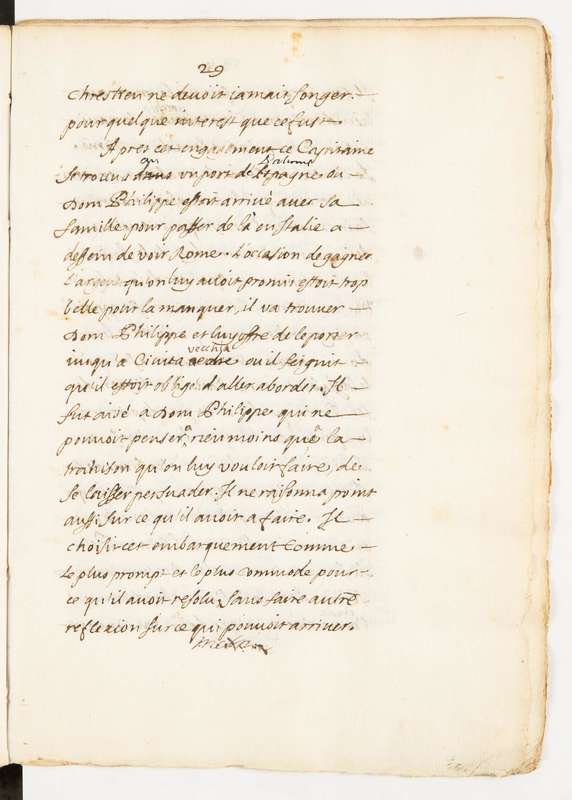 29
chrestien ne devoit iamais songer.
pour quelque interest que ce fust.
Apres cet engagement ce Capitaine
qui d'alicant
se trouva dans un port de l'espagne ou
Dom Philippe estoit arrivé avec sa
famille pour passer de là en Italie a
dessein de voir Rome. L'occasion de gagner
l'argent qu'on luy avoit promis estoit trop
belle pour la manquer, il va trouver
Dom Philippe et luy offre de le porter
vechia
iusqu'a Civita vedre ou il feignit
qu'il estoit obligé d'aller aborder. Il
fut aisé a Dom Philippe qui ne
pouvoit penser a rien moins qu'a la
trahison qu'on luy vouloit faire, de
se laisser persuader. Il ne raisonna point
aussi sur ce qu'il avoit a faire. Il
choisit cet embarquement comme
le plus prompt et le plus commode pour
ce qu'il avoit resolu, sans faire autre
reflexion sur ce qui pouvoit arriver.